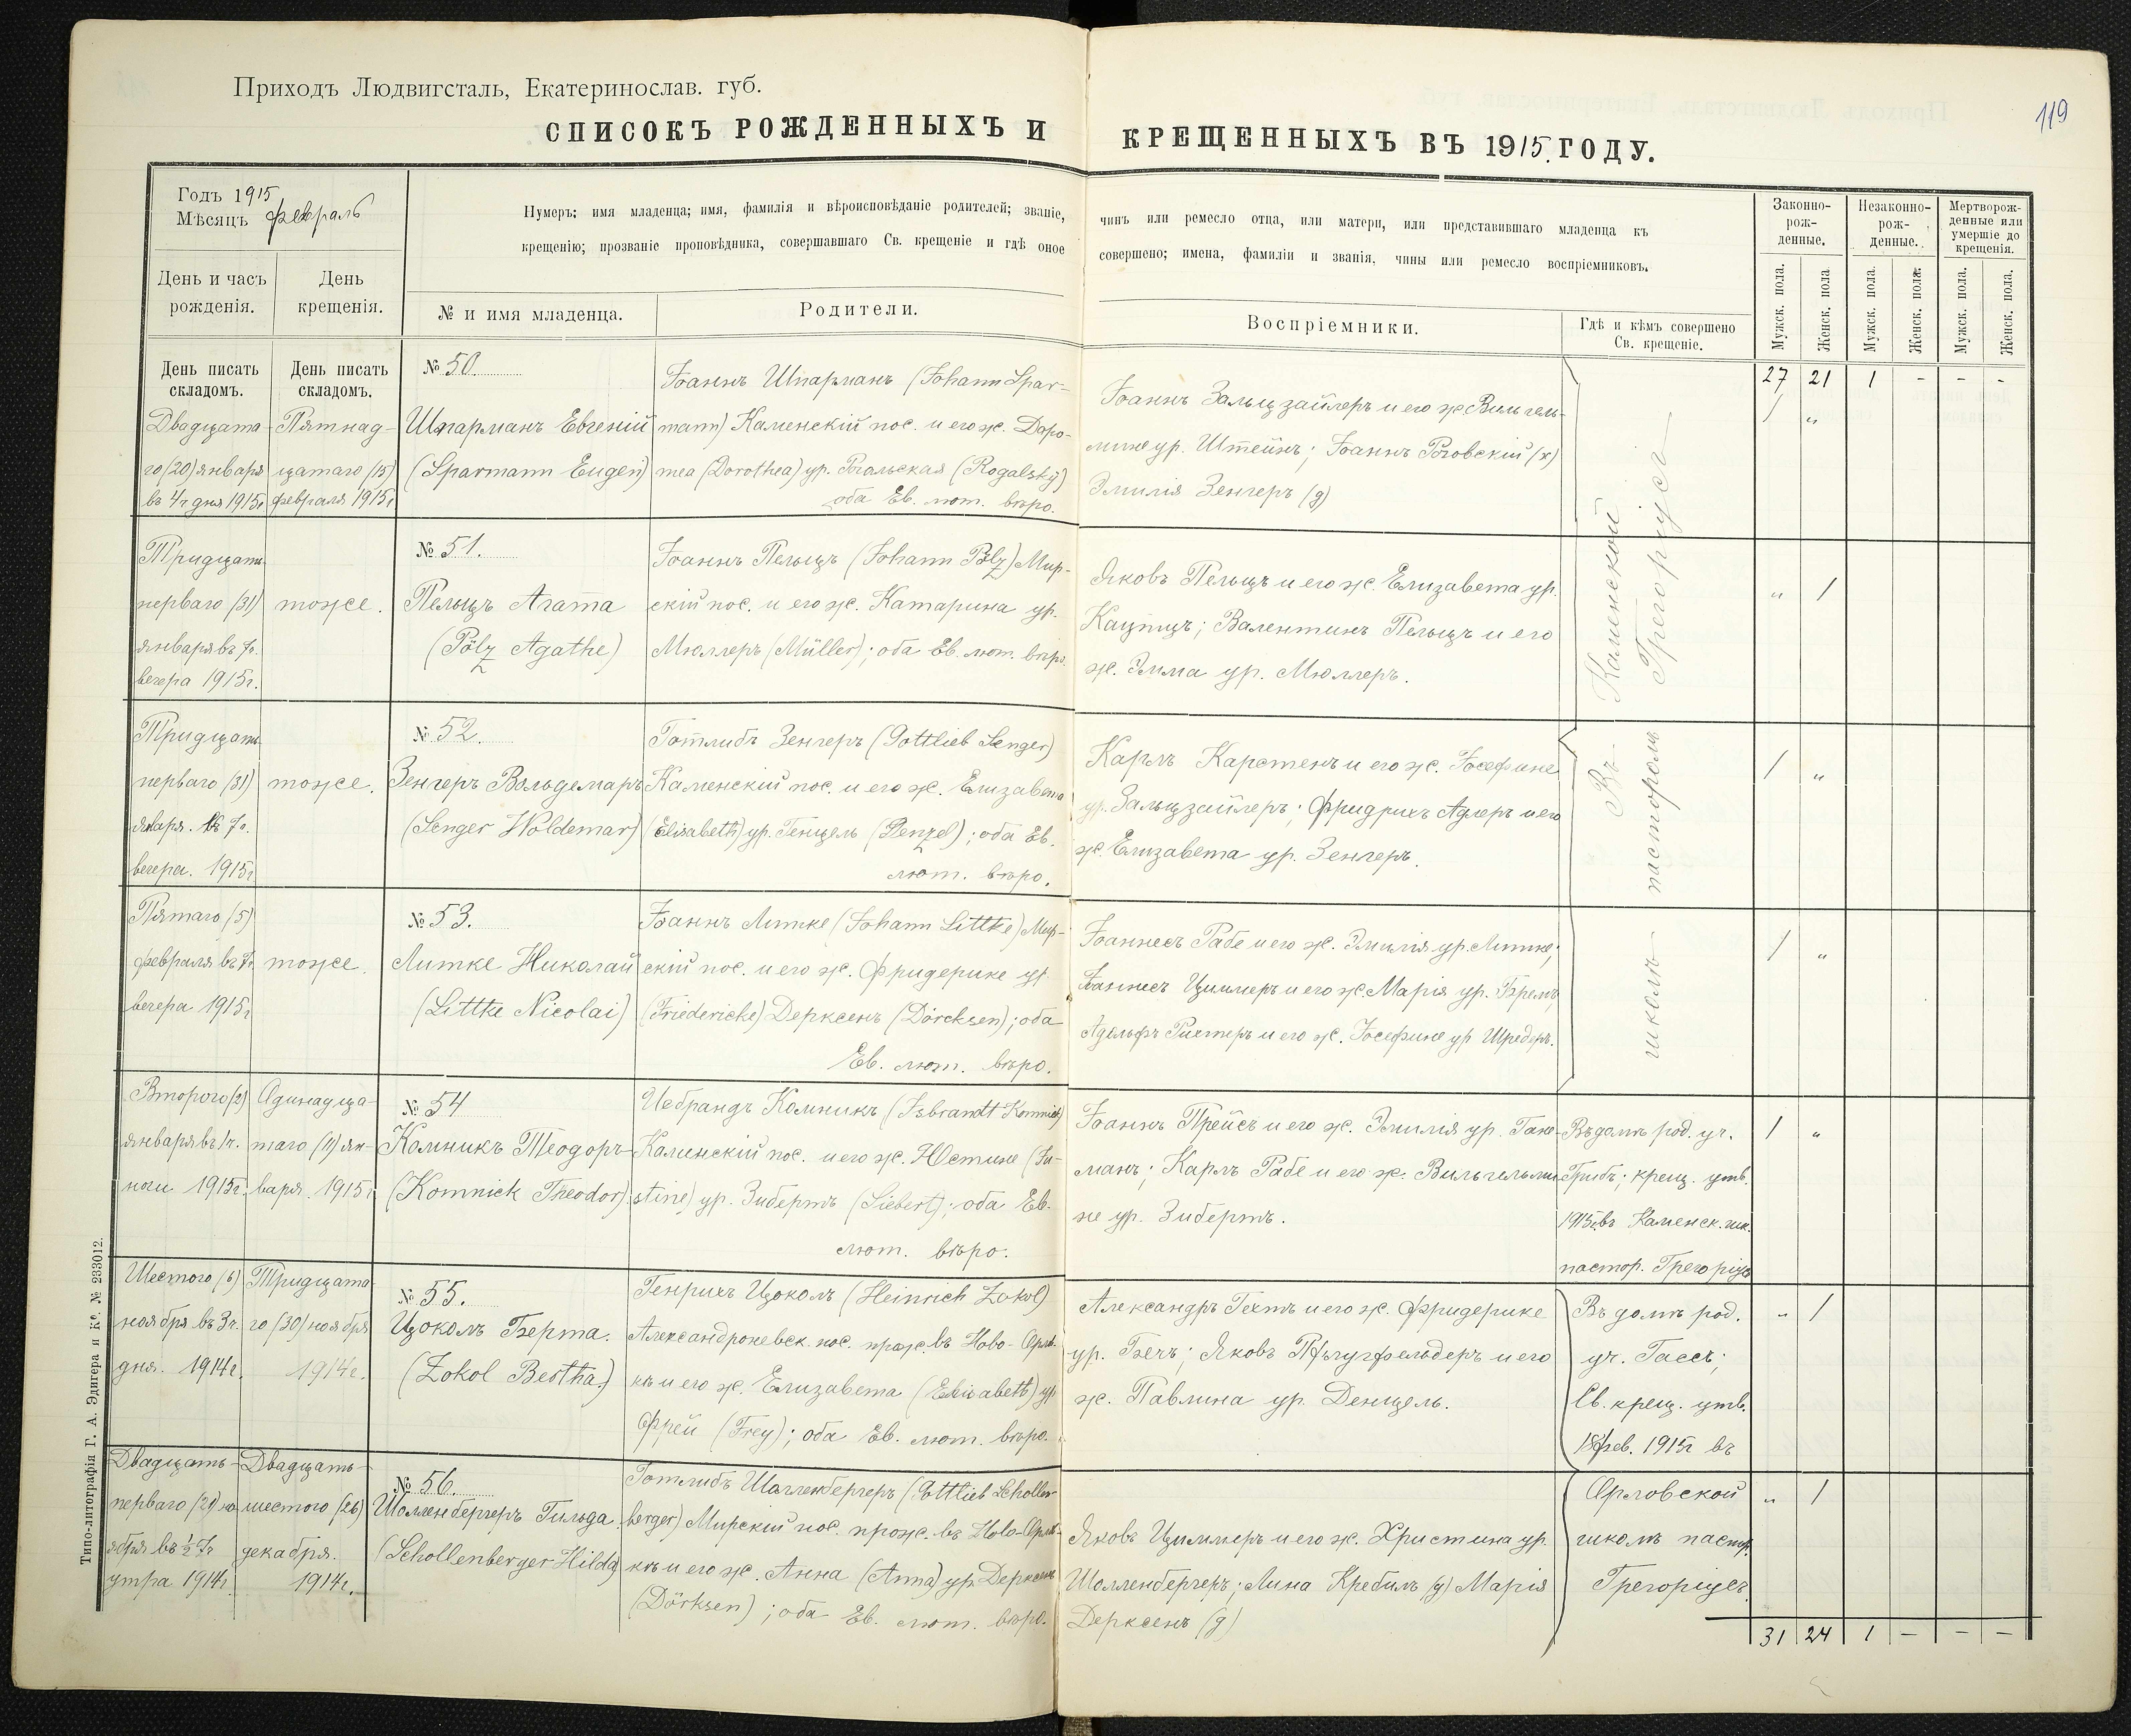 119
Приходъ Людвигсталь, Екатеринослав. губ.
СПИСОКЪ РОЖДЕННЫХЪ И КРЕЩЕННЫХЪ ВЪ 1915 ГОДУ.
Годъ 1915
Мѣсяцъ февраль
Нумеръ; имя младенца; имя, фамилія и вѣроисповѣданіе родителей; званіе, чинъ или ремесло отца, или матери, или представившаго младенца къ
крещенію; прозваніе проповѣдника, совершавшаго Св. крещеніе и гдѣ оное совершено; имена, фамиліи и званія, чины или ремесло воспріемниковъ.
Законно-
рож-
денные.
Незаконно-
рож-
денные.
Мертворож-
денные или
умершіе до
крещенія.
День и часъ
рожденія.
День
крещенія.
№ и имя младенца.
Родители.
Воспріемники.
Гдѣ и кѣмъ совершено
Св. крещеніе.
Мужск. пола.
Женск. пола
Мужск. пола.
Женск. пола.
Мужск. пола.
Женск. пола.
День писать
складомъ.
День писать
складомъ.
27 21 1 - - -
Двадцата-
го (20) января
въ 4ч дня 1915г
Пятнад-
цатаго (15)
февраля 1915г.
№ 50.
Шпарманъ Евгеній
(Sparmann Eugen)
Іоаннъ Шпарманъ (Johann Spar-
mann) Каменскій пос. и его ж. Доро-
теа (Dorothea) ур. Рогальская (Rogalsky)
оба Ев. лют. вѣро.
Іоаннъ Зальцзайлеръ и его ж Вильгель-
мине ур. Штейнъ; Іоаннъ Роговскій (х)
Эмилія Зенгеръ (д)
1 "
Тридцать
перваго (31)
января въ 7ч.
вечера 1915г.
тоже.
№ 51.
Пельцъ Агата
(Pölz Agathe)
Іоаннъ Пельцъ (Johann Pölz) Мир-
скій пос. и его ж. Катарина ур.
Мюллеръ (Müller); оба Ев. лют. вѣро.
Яковъ Пельцъ и его ж. Елизавета ур.
Валентинъ Пельцъ и его
ж. Эмма ур. Мюллеръ.
" 1
Тридцать
перваго (31)
7ч.
вечера. 1915г
тоже.
№ 52.
Зенгеръ Вольдемаръ
(Senger Woldemar)
Готлибъ Зенгеръ (Gottlieb Senger)
Каменскій пос. и его ж. Елизавета
(Elisabeth) ур. Генцель (Genzel); оба Ев.
лют. вѣро.
Карлъ Карстенъ и его ж. Іосефине
ур. Зальцзайлеръ; Фридрихъ Адлеръ и его
ж. Елизавета ур. Зенгеръ.
1 "
Пятаго (5)
февраля въ 7ч.
вечера 1915г
тоже.
№ 53.
Литке Николай
(Littke Nicolai)
Іоаннъ Литке (Johann Littke) Мир-
скій пос. и его ж. Фридерике ур.
(Friedericke) Дерксенъ (Dörcksen); оба
Ев. лют. вѣро.
Іоаннесъ Рабе и его ж. Эмилія ур. Литке;
Іоаннесъ Циммеръ и его ж. Марія ур.
Адольфъ Рихтеръ и его ж. Іосефине ур Шредеръ.
Въ Каменской
школѣ пасторомъ Грегоріусъ
1 "
Второго (2)
января въ 1ч.
ночи 1915г.
Одинадца-
таго (11) ян-
варя. 1915г
№ 54
Комникъ Теодоръ
(Komnick Theodor).
Исбрандъ Комникъ (Isbrandt Komnick)
Каменскій пос. и его ж. Юстине (Ju-
stine) ур. Зибертъ (Siebert); оба Ев.
лют. вѣро.
Іоаннъ Прейсъ и его ж. Эмилія ур. Гане-
манъ; Карлъ Рабе и его ж. Вильгельми-
не ур. Зибертъ.
Въ домѣ род. уч.
Грибъ; крещ. утв.
1915г. въ Каменск. шк.
пастор. Грегоріусъ
1 "
Шестого (6)
ноября въ 3ч.
дня. 1914г.
Тридцата-
го (30) ноября
1914г.
№ 55.
Цоколъ Берта.
(Zokol Bertha.)
Генрихъ Цоколъ (Heinrich Zokol)
Александроневск. пос. прож. въ Ново-Орлов-
кѣ и его ж. Елизавета (Elisabeth) ур
Фрей (Frey); оба Ев. лют. вѣро.
Александръ Гехтъ и его ж. Фридерике
ур. Бехъ; Яковъ Пфлугфельдеръ и его
ж. Павлина ур. Денцель.
Въ домѣ род.
уч. Гассъ;
Св. крещ. утв.
15 фев. 1915г въ
" 1
Двадцать-
перваго (21) но-
ября въ ½ 7ч
утра 1914г.
Двадцать-
шестого (26)
декабря.
1914г.
№ 56.
Шолленбергеръ Гильда
(Schollenberger Hilda)
Готлибъ Шолленбергеръ (Gottlieb Schollen-
berger) Мирскій пос. прож. въ Ново-Орлов-
кѣ и его ж. Анна (Anna) ур. Дерксенъ
(Dörksen); оба Ев. лют. вѣро.
Яковъ Циммеръ и его ж. Христина ур.
Шолленбергеръ; Лина Кребилъ (д) Марія
Дерксенъ (д)
Орловской
школѣ пастор.
Грегоріусъ.
" 1
31 24 1 - - -
Типо-литографія Г. А. Эдигера и К°. № 233012.